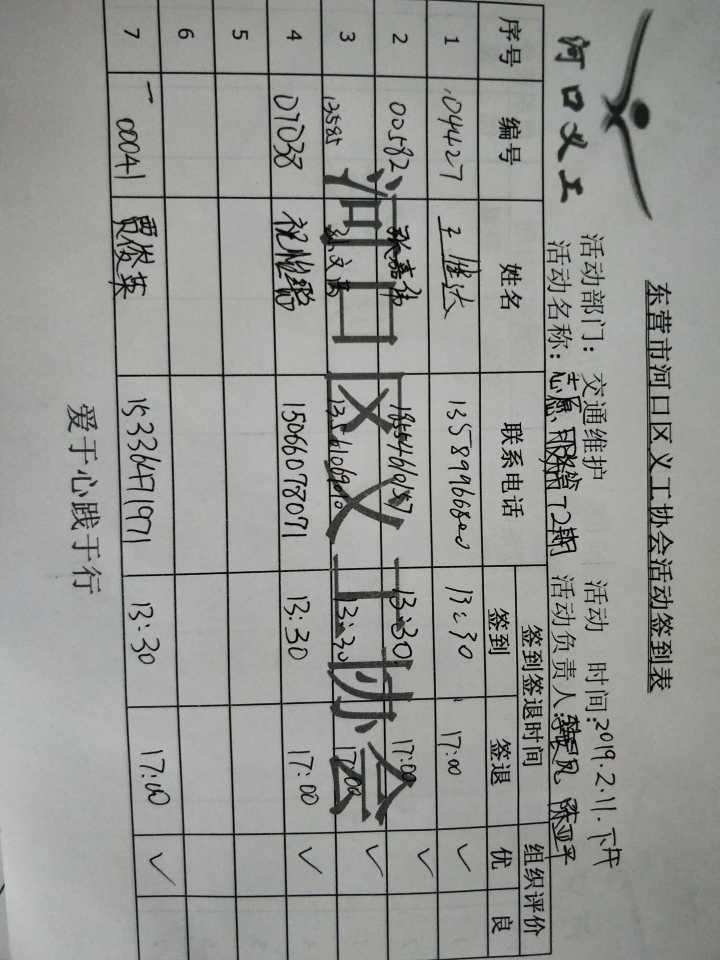 河口义工
东营市河口区义工协会活动签到表
活动部门: 交通维护 活动 时间:2019.2.11.下午
活动名称: 志愿 72期 活动负责人: 陈亚平
序号 编号 姓名 联系电话 签到签退时间 组织评价
签到 签退 优 良
1 04427 王胜达 13589966800 13:30 17:00 ✓
2 00582 张嘉伟 13:30 17:00 ✓
3 13585 13:30 17:00 ✓
4 07038 15066078071 13:30 17:00 ✓
5
6
7 00041 贾俊英 15336471971 13:30 17:00 ✓
河口区义工协会
爱于心践于行